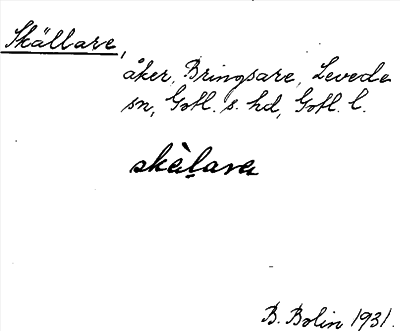 Skällare,
åker, Bringsare, Levede
sn, Gotl. s. hd, Gotl. l.
skὰlara
B. Bolin 1931.